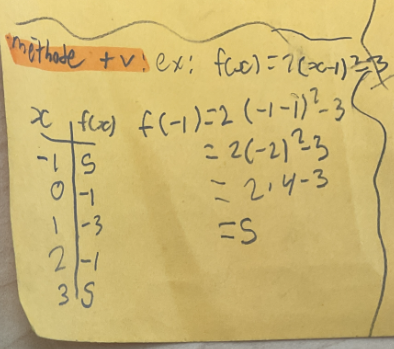 méthode + v: ex: f(x)=2(x-1)²-3
x | f(x) f(-1)=2(-1-1)²-3
-1 | 5 =2(-2)²-3
0 | -1 =2·4-3
1 | -3 =5
2 | -1
3 | 5